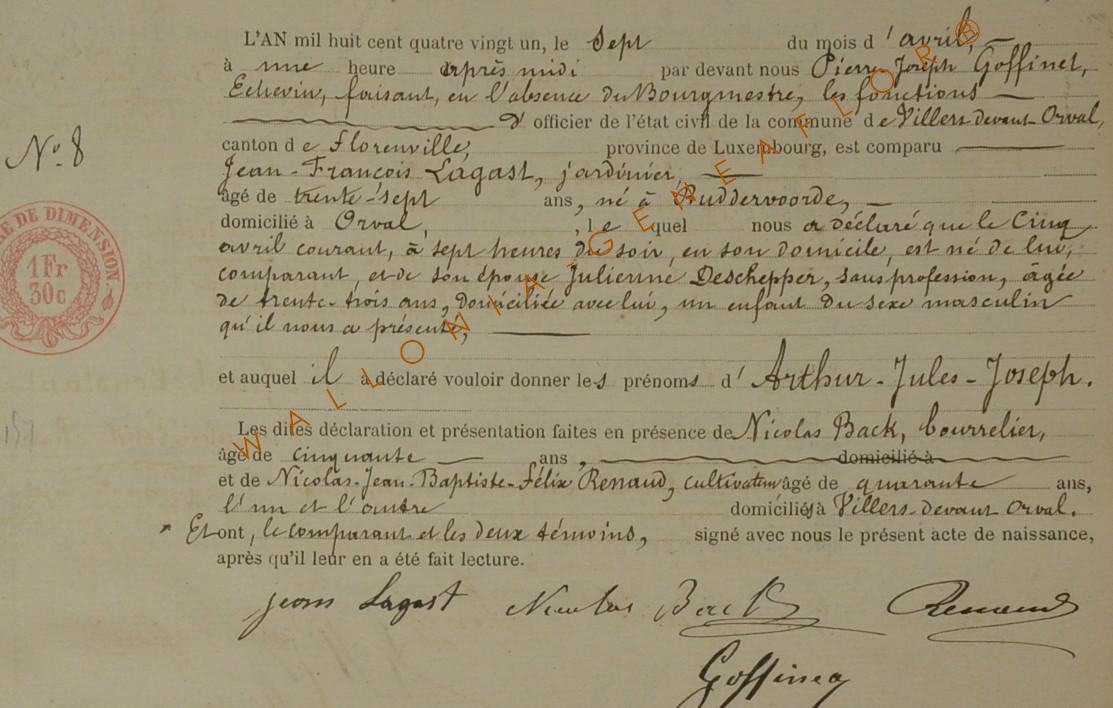 L'AN mil huit cent quatre vingt un, le Sept du mois d'avril,
à une heure après midi par devant nous Pierre Joseph Goffinet,
Echevin, faisant, en l'absence du Bourgmestre, les fonctions
d'officier de l'état civil de la commune de Villers-devant-Orval,
N° 8
canton de Florenville, province de Luxembourg, est comparu
Jean-François Lagast, jardinier,
âgé de trente-sept ans, né à Ruddervoorde,
domicilié à Orval, lequel nous a déclaré que le Cinq
avril courant, à sept heures du soir, en son domicile, est né de lui,
comparant, et de son épouse Julienne Deschepper, sans profession, âgée
de trente-trois ans, domiciliée avec lui, un enfant du sexe masculin
qu'il nous a présenté,
et auquel il a déclaré vouloir donner les prénoms d'Arthur-Jules-Joseph.
Les dites déclaration et présentation faites en présence de Nicolas Back, bourrelier,
âgé de cinquante ans, domicilié à
et de Nicolas-Jean-Baptiste-Félix Renaud, cultivateur âgé de quarante ans,
l'un et l'autre domiciliés à Villers-devant-Orval.
Et ont, le comparant et les deux témoins, signé avec nous le présent acte de naissance,
après qu'il leur en a été fait lecture.
jean Lagast Nicolas Back Renaud
Goffinet
DE DIMENSION.
1 Fr
30c
WALLONIA GENEAFLORE ®